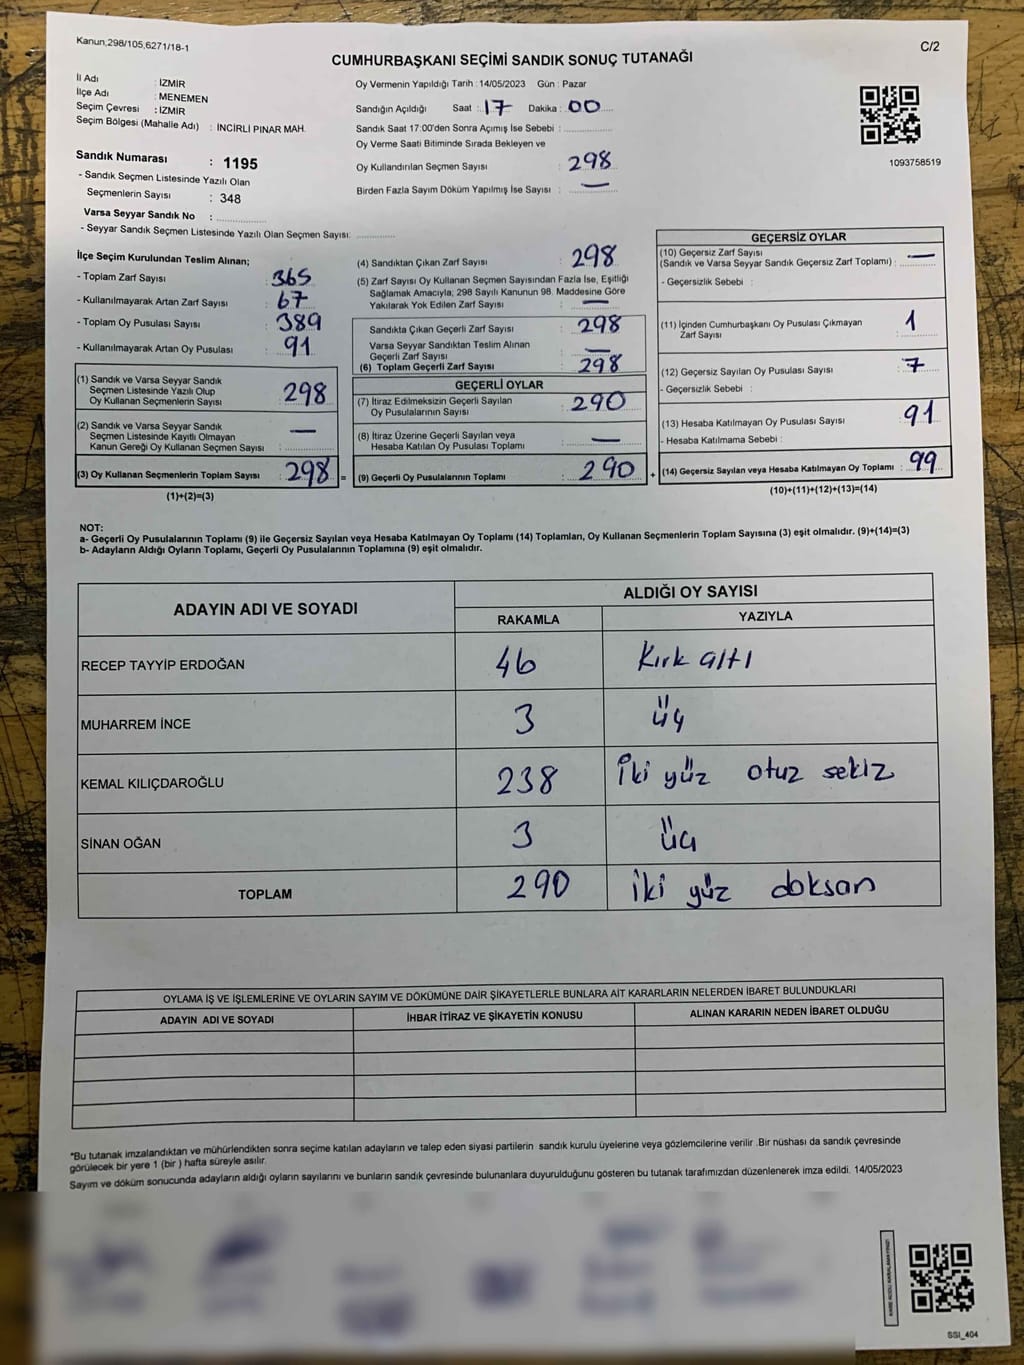 Kanun,298/105,6271/18-1
C/2
CUMHURBAŞKANI SEÇİMİ SANDIK SONUÇ TUTANAĞI
İl Adı : İZMİR
İlçe Adı : MENEMEN
Seçim Çevresi : İZMİR
Seçim Bölgesi (Mahalle Adı) : İNCİRLİ PINAR MAH.
Sandık Numarası : 1195
- Sandık Seçmen Listesinde Yazılı Olan
Seçmenlerin Sayısı : 348
Varsa Seyyar Sandık No :
- Seyyar Sandık Seçmen Listesinde Yazılı Olan Seçmen Sayısı:
Oy Vermenin Yapıldığı Tarih : 14/05/2023 Gün : Pazar
Sandığın Açıldığı Saat : 17 Dakika : 00
Sandık Saat 17:00'den Sonra Açımış İse Sebebi :
Oy Verme Saati Bitiminde Sırada Bekleyen ve
Oy Kullandırılan Seçmen Sayısı : 298
Birden Fazla Sayım Döküm Yapılmış İse Sayısı : —
1093758519
İlçe Seçim Kurulundan Teslim Alınan;
- Toplam Zarf Sayısı : 365
- Kullanılmayarak Artan Zarf Sayısı : 67
- Toplam Oy Pusulası Sayısı : 389
- Kullanılmayarak Artan Oy Pusulası : 91
(1) Sandık ve Varsa Seyyar Sandık
Seçmen Listesinde Yazılı Olup
Oy Kullanan Seçmenlerin Sayısı : 298
(2) Sandık ve Varsa Seyyar Sandık
Seçmen Listesinde Kayıtlı Olmayan
Kanun Gereği Oy Kullanan Seçmen Sayısı : —
(3) Oy Kullanan Seçmenlerin Toplam Sayısı : 298 =
(1)+(2)=(3)
(4) Sandıktan Çıkan Zarf Sayısı : 298
(5) Zarf Sayısı Oy Kullanan Seçmen Sayısından Fazla İse, Eşitliği
Sağlamak Amacıyla; 298 Sayılı Kanunun 98. Maddesine Göre
Yakılarak Yok Edilen Zarf Sayısı : —
Sandıkta Çıkan Geçerli Zarf Sayısı : 298
Varsa Seyyar Sandıktan Teslim Alınan
Geçerli Zarf Sayısı : —
(6) Toplam Geçerli Zarf Sayısı : 298
GEÇERLİ OYLAR
(7) İtiraz Edilmeksizin Geçerli Sayılan
Oy Pusulalarının Sayısı : 290
(8) İtiraz Üzerine Geçerli Sayılan veya
Hesaba Katılan Oy Pusulası Toplamı : —
(9) Geçerli Oy Pusulalarının Toplamı : 290 +
GEÇERSİZ OYLAR
(10) Geçersiz Zarf Sayısı
(Sandık ve Varsa Seyyar Sandık Geçersiz Zarf Toplamı) : —
- Geçersizlik Sebebi :
(11) İçinden Cumhurbaşkanı Oy Pusulası Çıkmayan
Zarf Sayısı : 1
(12) Geçersiz Sayılan Oy Pusulası Sayısı : 7
- Geçersizlik Sebebi :
(13) Hesaba Katılmayan Oy Pusulası Sayısı : 91
- Hesaba Katılmama Sebebi :
(14) Geçersiz Sayılan veya Hesaba Katılmayan Oy Toplamı : 99
(10)+(11)+(12)+(13)=(14)
NOT:
a- Geçerli Oy Pusulalarının Toplamı (9) ile Geçersiz Sayılan veya Hesaba Katılmayan Oy Toplamı (14) Toplamları, Oy Kullanan Seçmenlerin Toplam Sayısına (3) eşit olmalıdır. (9)+(14)=(3)
b- Adayların Aldığı Oyların Toplamı, Geçerli Oy Pusulalarının Toplamına (9) eşit olmalıdır.
ADAYIN ADI VE SOYADI
ALDIĞI OY SAYISI
RAKAMLA YAZIYLA
RECEP TAYYİP ERDOĞAN 46 Kırk altı
MUHARREM İNCE 3 üç
KEMAL KILIÇDAROĞLU 238 İki yüz otuz sekiz
SİNAN OĞAN 3 üç
TOPLAM 290 iki yüz doksan
OYLAMA İŞ VE İŞLEMLERİNE VE OYLARIN SAYIM VE DÖKÜMÜNE DAİR ŞİKAYETLERLE BUNLARA AİT KARARLARIN NELERDEN İBARET BULUNDUKLARI
ADAYIN ADI VE SOYADI İHBAR İTİRAZ VE ŞİKAYETİN KONUSU ALINAN KARARIN NEDEN İBARET OLDUĞU
*Bu tutanak imzalandıktan ve mühürlendikten sonra seçime katılan adayların ve talep eden siyasi partilerin sandık kurulu üyelerine veya gözlemcilerine verilir .Bir nüshası da sandık çevresinde
görülecek bir yere 1 (bir ) hafta süreyle asılır.
Sayım ve döküm sonucunda adayların aldığı oyların sayılarını ve bunların sandık çevresinde bulunanlara duyurulduğunu gösteren bu tutanak tarafımızdan düzenlenerek imza edildi. 14/05/2023
SSI_404